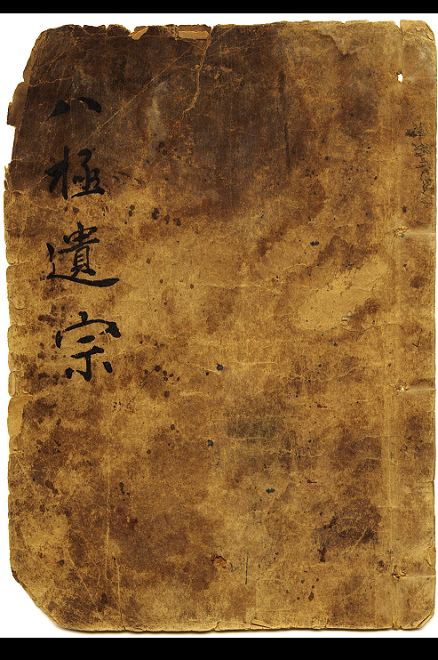 八極遺宗